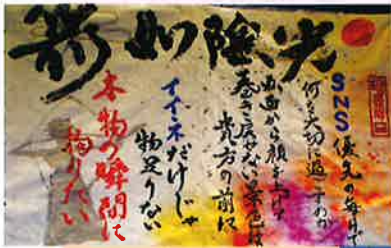 光陰如箭
SNS優先の毎日で
何を大切に過ごすのか
画面から顔を上げて
巻き戻せない景色は
貴方の前に
イイネだけじゃ
物足りない
本物の瞬間に
拘りたい